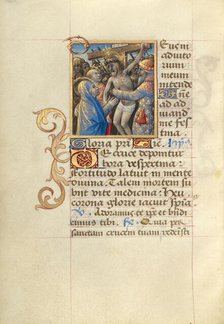 Deus in
adiuto
rium
meum
intende
Dñe
ad ad
iuvand
me fes
tina
Gloria pri
De cruce deponitur
hora vespertina:
fortitudo latuit in mente
divina. Talem mortem su
biit vite medicina Heu
corona glorie iacuit
Adoramus te xpe et bñdi
cimus tibi Quia per
sanctam crucem tuam redemisti